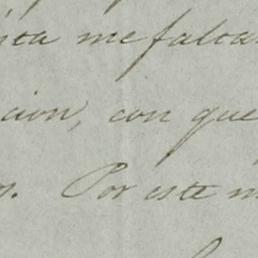 ita me falta
cion, con que
s. Por este m